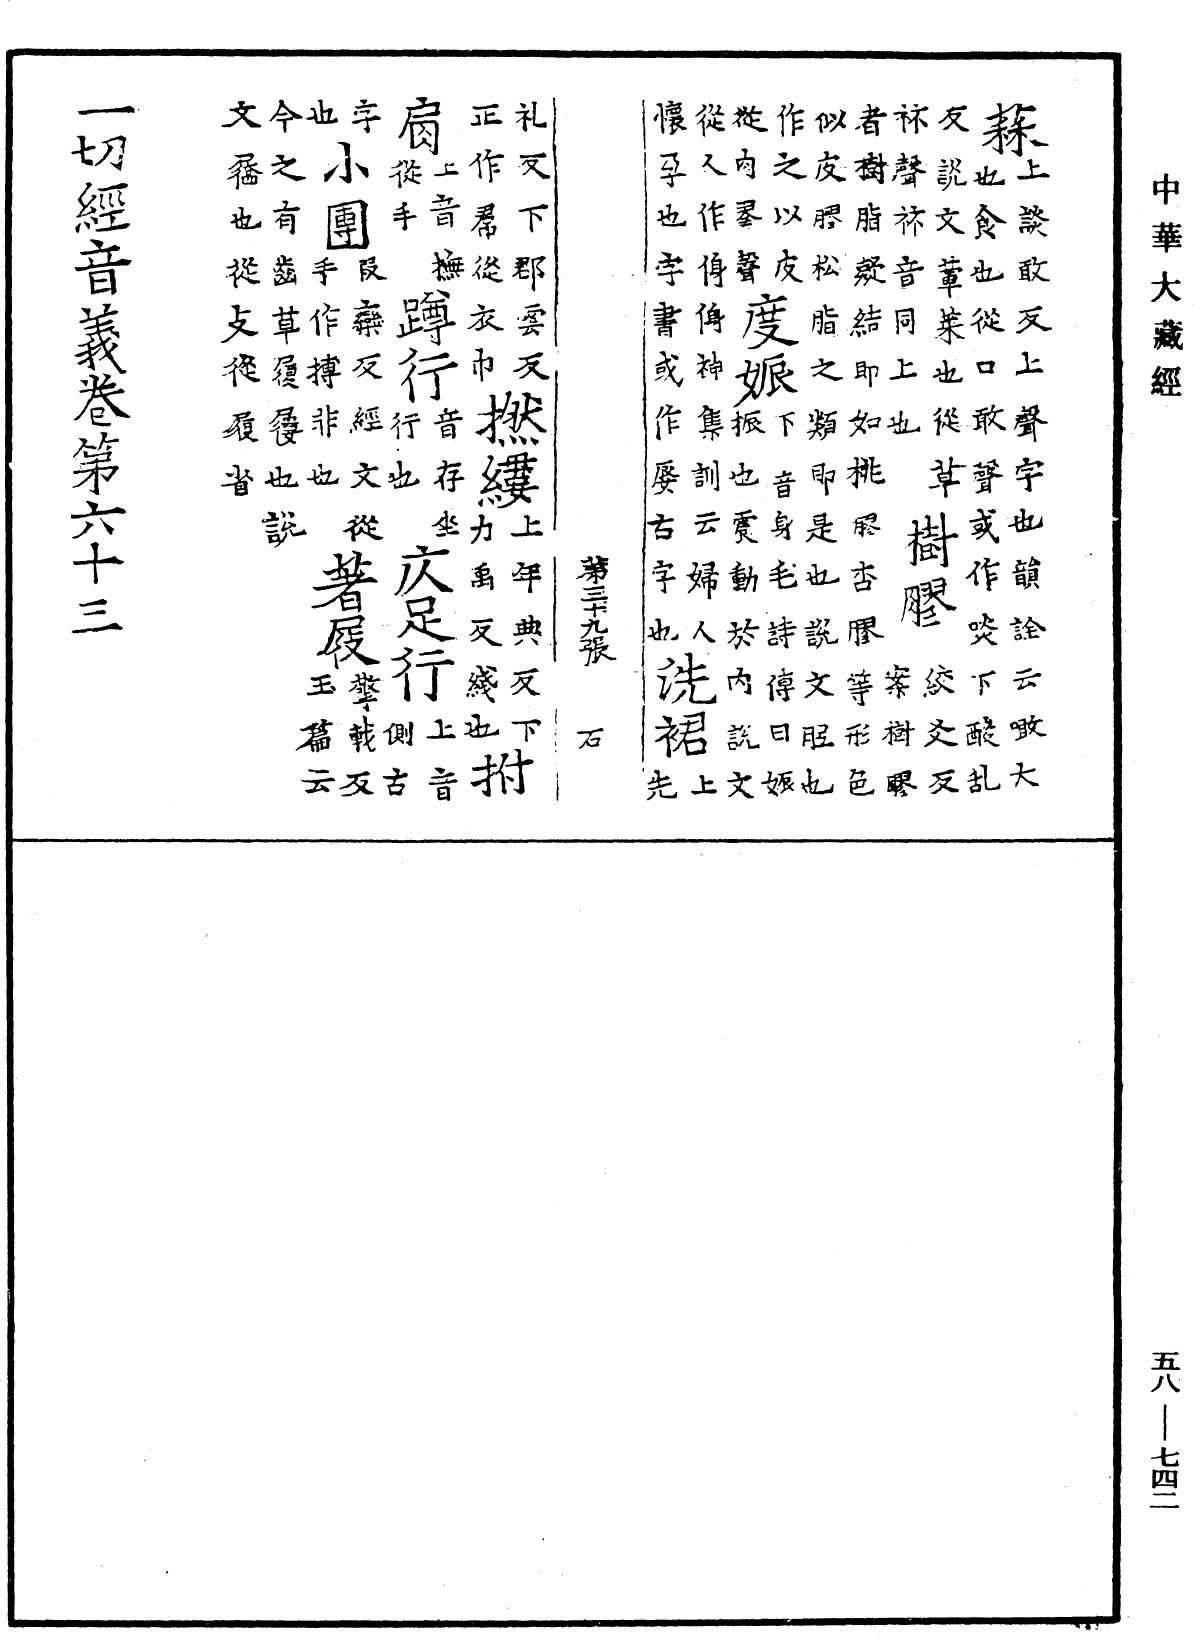 中華大藏經
蒜上談敢反上聲字也韻詮云噉大
也食也從口敢聲或作啖下酸乱
反說文葷菜也從草
祘聲祘音同上也樹膠絞爻反案樹膠
者樹脂凝結即如桃膠杏膠等形色
似皮膠松脂之類即是也說文䏰也
作之以皮度娠下音身毛詩傳曰娠
振也震動於內說文
從肉翏聲
從人作傳傳神集訓云婦人
懷孕也字書或作㞌古字也洗裙上先
第三十九張 石
礼反下郡雲反撚縷上年典反下
正作帬從衣巾力禹反綫也拊
肩上音撫從手蹲行音存坐行也仄足行上音側古
字小團段欒反經文從
也手作摶非也著屐擎戟反玉篇云
今之有齒草履屐也說
文屩也從支從履省
一切經音義卷第六十三
五八—七四二